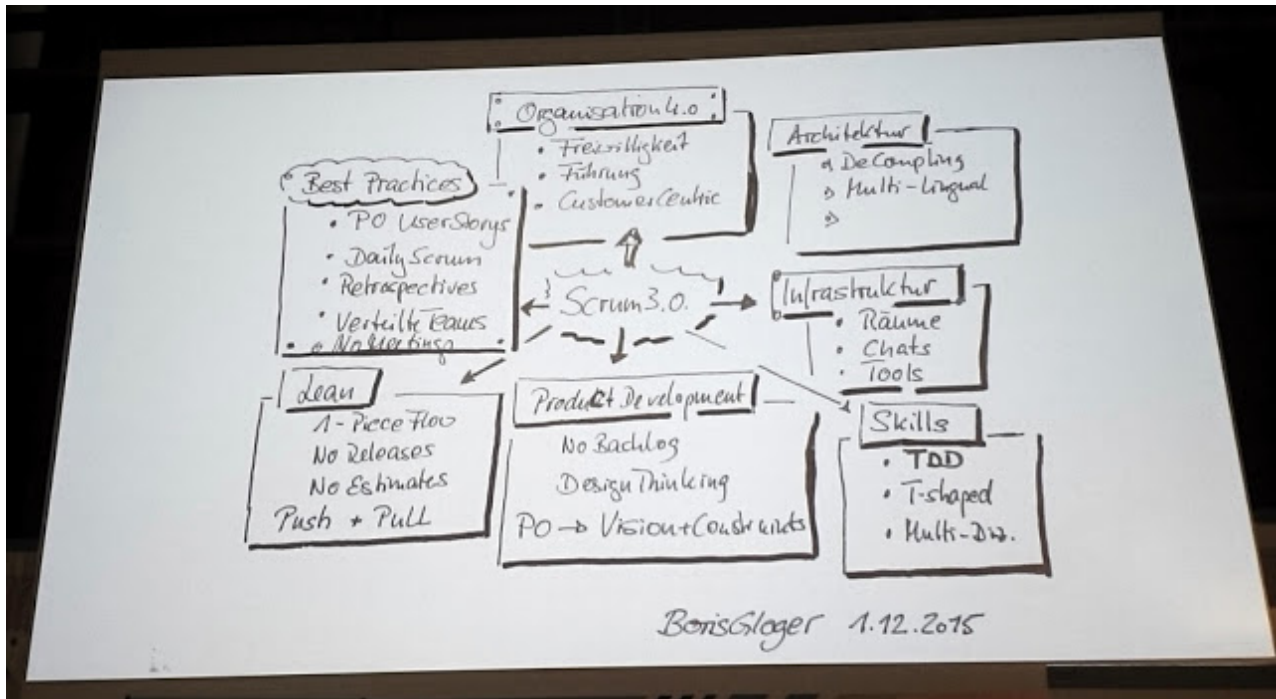 Organisation 4.0
• Freiwilligkeit
• Führung
• CustomerCentric
Architektur
DeCoupling
Multi-Lingual
Best Practices
• PO UserStorys
• Daily Scrum
• Retrospectives
• Verteilte Teams
• No Meetings
Scrum 3.0.
Infrastruktur
• Räume
• Chats
• Tools
Lean
1-Piece Flow
No Releases
No Estimates
Push + Pull
Product Development
No Backlog
Design Thinking
PO → Vision + Constraints
Skills
• TDD
• T-shaped
• Multi-Diz.
Boris Gloger 1.12.2015